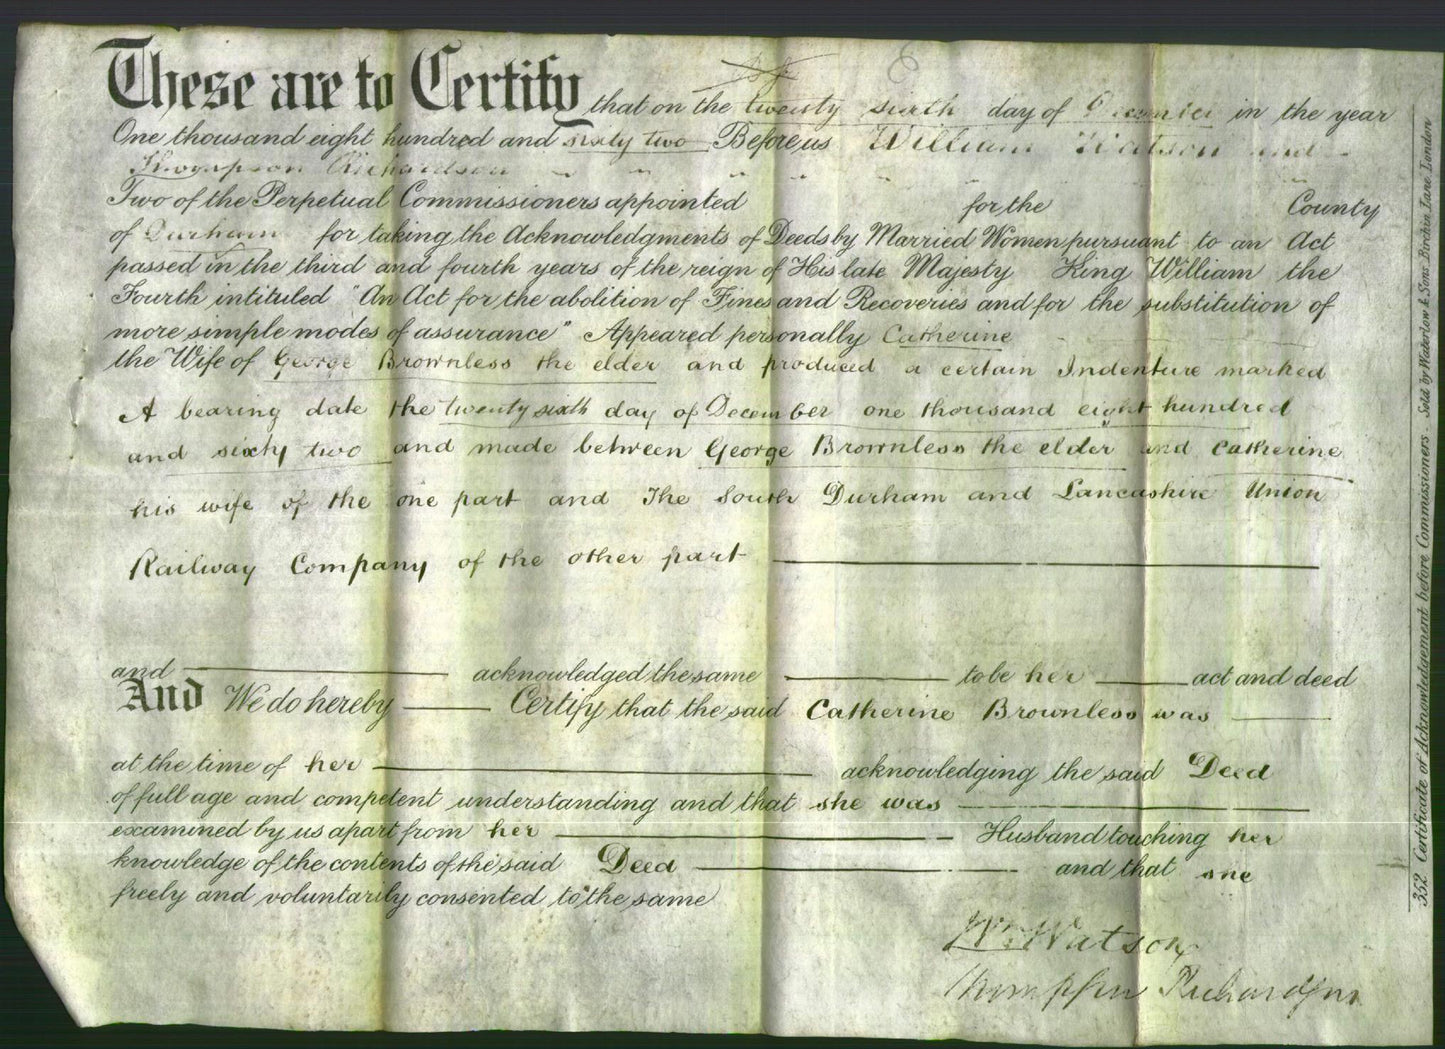 These are to Certify that on the twenty sixth day of December in the year
One thousand eight hundred and sixty two Before us William Watson and
Thompson Richardson
Two of the Perpetual Commissioners appointed for the County
of Durham for taking the Acknowledgments of Deeds by Married Women pursuant to an Act
passed in the third and fourth years of the reign of His late Majesty King William the
Fourth intituled "An Act for the abolition of Fines and Recoveries and for the substitution of
more simple modes of assurance" Appeared personally Catherine
the Wife of George Brownless the elder and produced a certain Indenture marked
A bearing date the twenty sixth day of December one thousand eight hundred
and sixty two and made between George Brownless the elder and Catherine
his wife of the one part and The South Durham and Lancashire Union
Railway Company of the other part
and acknowledged the same to be her act and deed
And We do hereby Certify that the said Catherine Brownless was
at the time of her acknowledging the said Deed
of full age and competent understanding and that she was
examined by us apart from her Husband touching her
knowledge of the contents of the said Deed and that she
freely and voluntarily consented to the same
Wm Watson
Thompson Richardson
352 Certificate of Acknowledgement before Commissioners - Sold by Waterlow & Sons Birchin Lane London